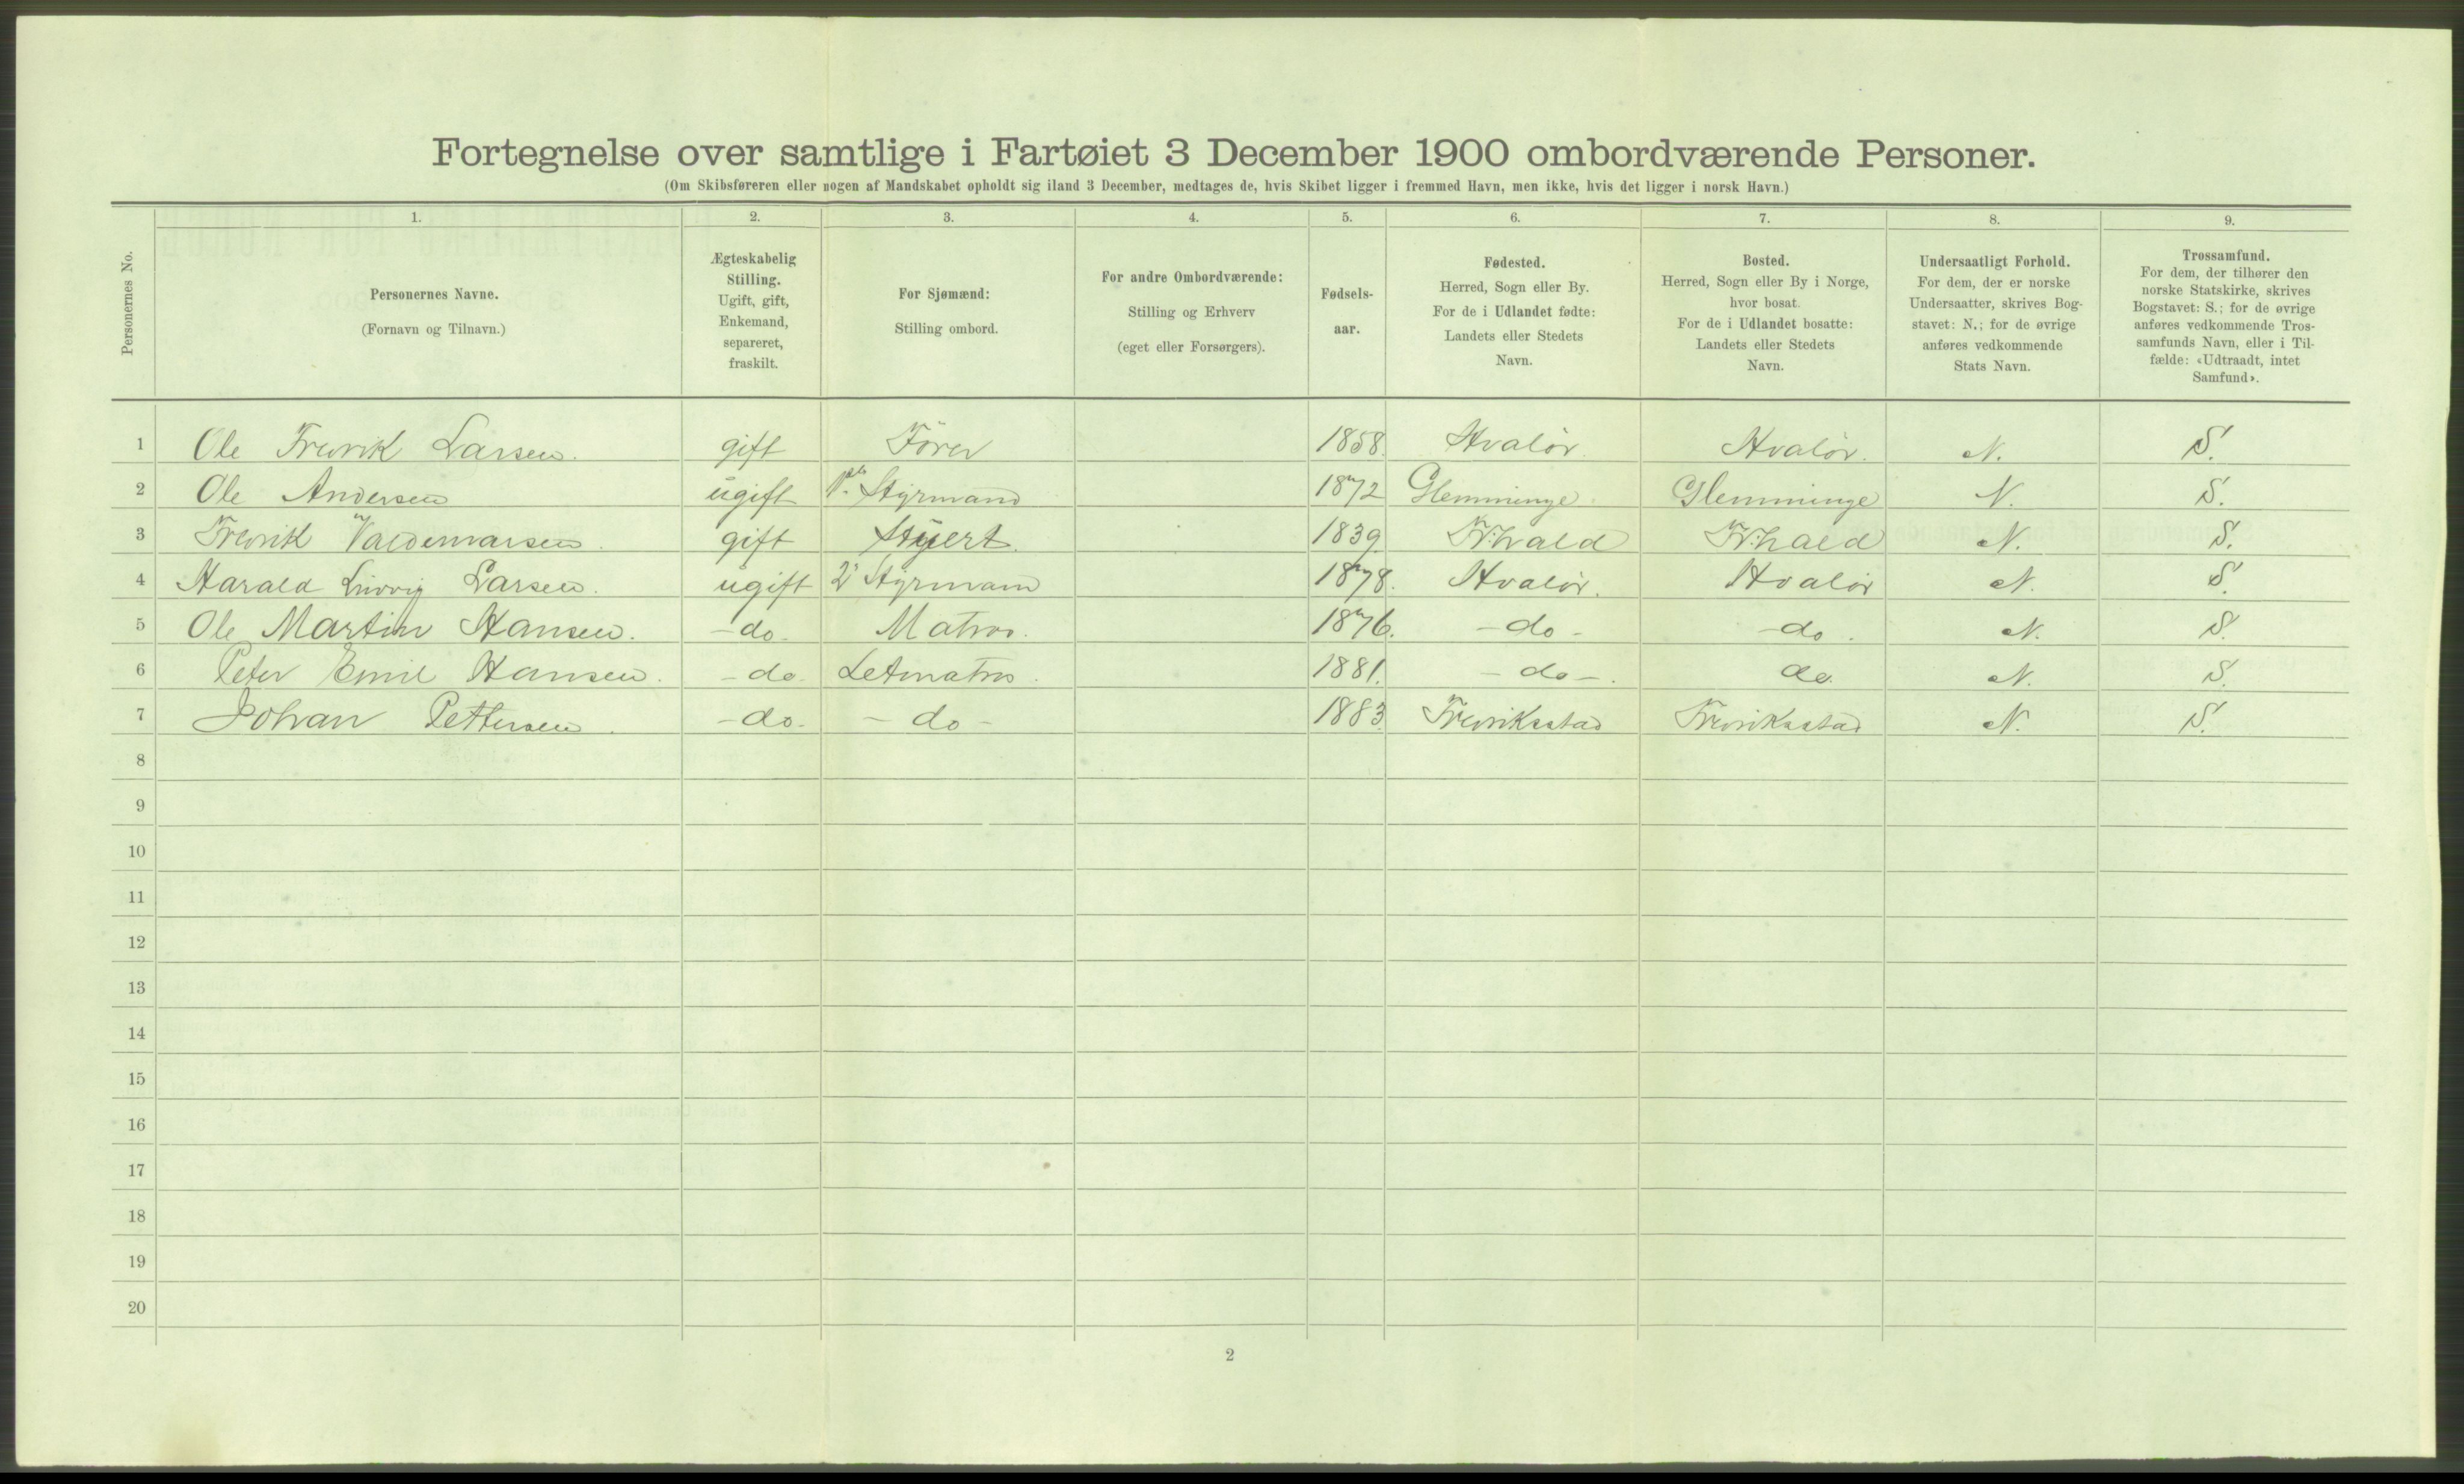 Fortegnelse over samtlige i Fartøiet 3 December 1900 ombordværende Personer.
(Om Skibsføreren eller nogen af Mandskabet opholdt sig iland 3 December, medtages de, hvis Skibet ligger i fremmed Havn, men ikke, hvis det ligger i norsk Havn.)
Personernes No.
1. 2. 3. 4. 5. 6. 7. 8. 9.
Personernes Navne.
(Fornavn og Tilnavn.)
Ægteskabelig
Stilling.
Ugift, gift,
Enkemand,
separeret,
fraskilt.
For Sjømænd:
Stilling ombord.
For andre Ombordværende:
Stilling og Erhverv
(eget eller Forsørgers).
Fødsels-
aar.
Fødested.
Herred, Sogn eller By.
For de i Udlandet fødte:
Landets eller Stedets
Navn.
Bosted.
Herred, Sogn eller By i Norge,
hvor bosat.
For de i Udlandet bosatte:
Landets eller Stedets
Navn.
Undersaatligt Forhold.
For dem, der er norske
Undersaatter, skrives Bog-
stavet: N.; for de øvrige
anføres vedkommende
Stats Navn.
Trossamfund.
For dem, der tilhører den
norske Statskirke, skrives
Bogstavet: S.; for de øvrige
anføres vedkommende Tros-
samfunds Navn, eller i Til-
fælde: «Udtraadt, intet
Samfund».
1 Ole Fredrik Larsen. gift Fører 1858. Hvalör. Hvalör. N. S.
2 Ole Andersen ugift Styrmand 1872 Glemminge Glemminge N. S.
3 Fredrik Valdemarsen. gift Stuert. 1839. Fr:hald Fr:hald N. S.
4 Harald Ludvig Larsen. ugift 2' Styrmand 1878. Hvalör. Hvalör N. S.
5 Ole Martin Hansen. - do - Matros. 1876. - do - - do. N. S.
6 Peter Emil Hansen. - do. Letmatros. 1881. - do -. do. N. S.
7 Johan Pettersen. - do - - do - 1883. Fredriksstad Fredriksstad N. S.
8
9
10
11
12
13
14
15
16
17
18
19
20
2